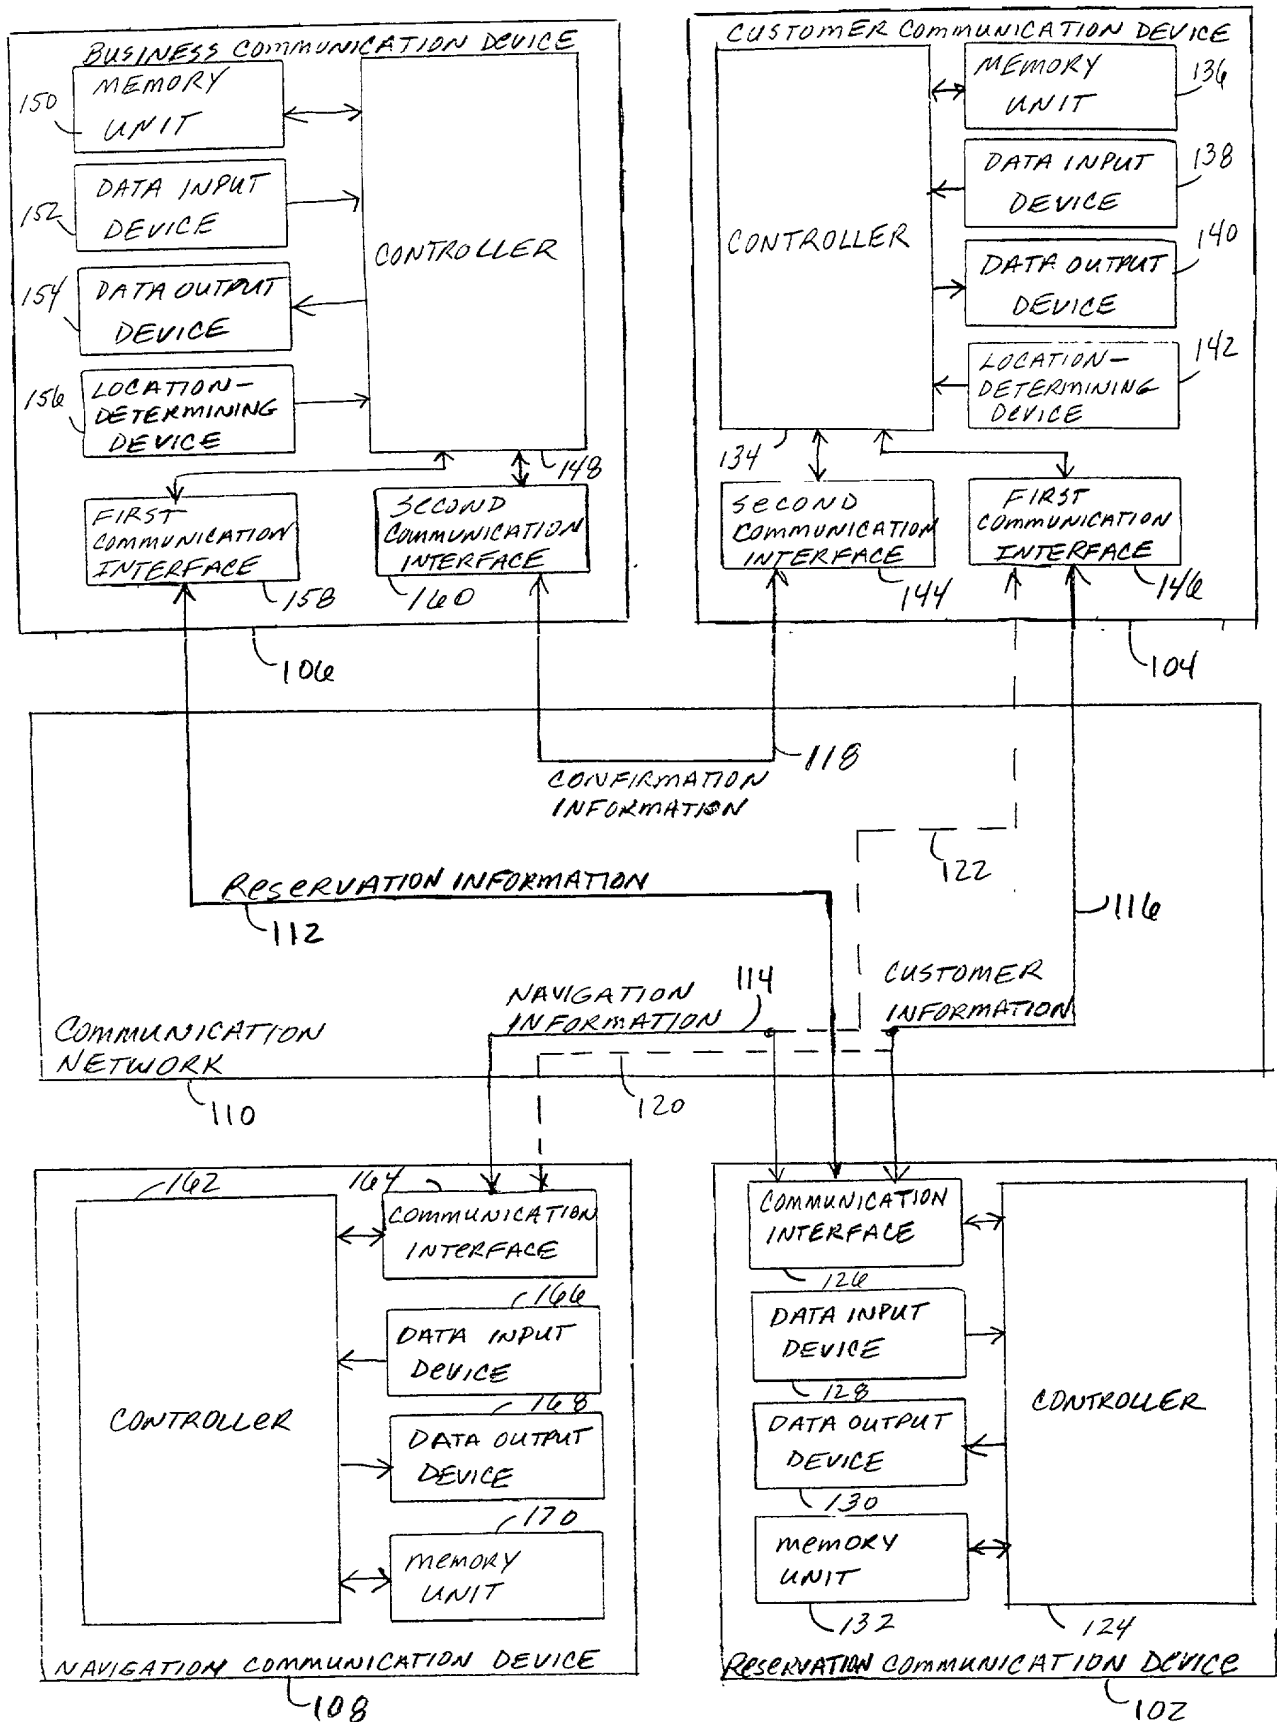 BUSINESS COMMUNICATION DEVICE
150
MEMORY
UNIT
152
DATA INPUT
DEVICE
154
DATA OUTPUT
DEVICE
156
LOCATION-
DETERMINING
DEVICE
CONTROLLER
148
FIRST
COMMUNICATION
INTERFACE
158
SECOND
COMMUNICATION
INTERFACE
160
106
CUSTOMER COMMUNICATION DEVICE
CONTROLLER
134
MEMORY
UNIT
136
DATA INPUT
DEVICE
138
DATA OUTPUT
DEVICE
140
LOCATION-
DETERMINING
DEVICE
142
SECOND
COMMUNICATION
INTERFACE
144
FIRST
COMMUNICATION
INTERFACE
146
104
118
CONFIRMATION
INFORMATION
122
RESERVATION INFORMATION
112
116
NAVIGATION
INFORMATION
114
CUSTOMER
INFORMATION
COMMUNICATION
NETWORK
110
120
162
CONTROLLER
164
COMMUNICATION
INTERFACE
166
DATA INPUT
DEVICE
168
DATA OUTPUT
DEVICE
170
MEMORY
UNIT
NAVIGATION COMMUNICATION DEVICE
108
COMMUNICATION
INTERFACE
126
DATA INPUT
DEVICE
128
DATA OUTPUT
DEVICE
130
MEMORY
UNIT
132
CONTROLLER
124
RESERVATION COMMUNICATION DEVICE
102